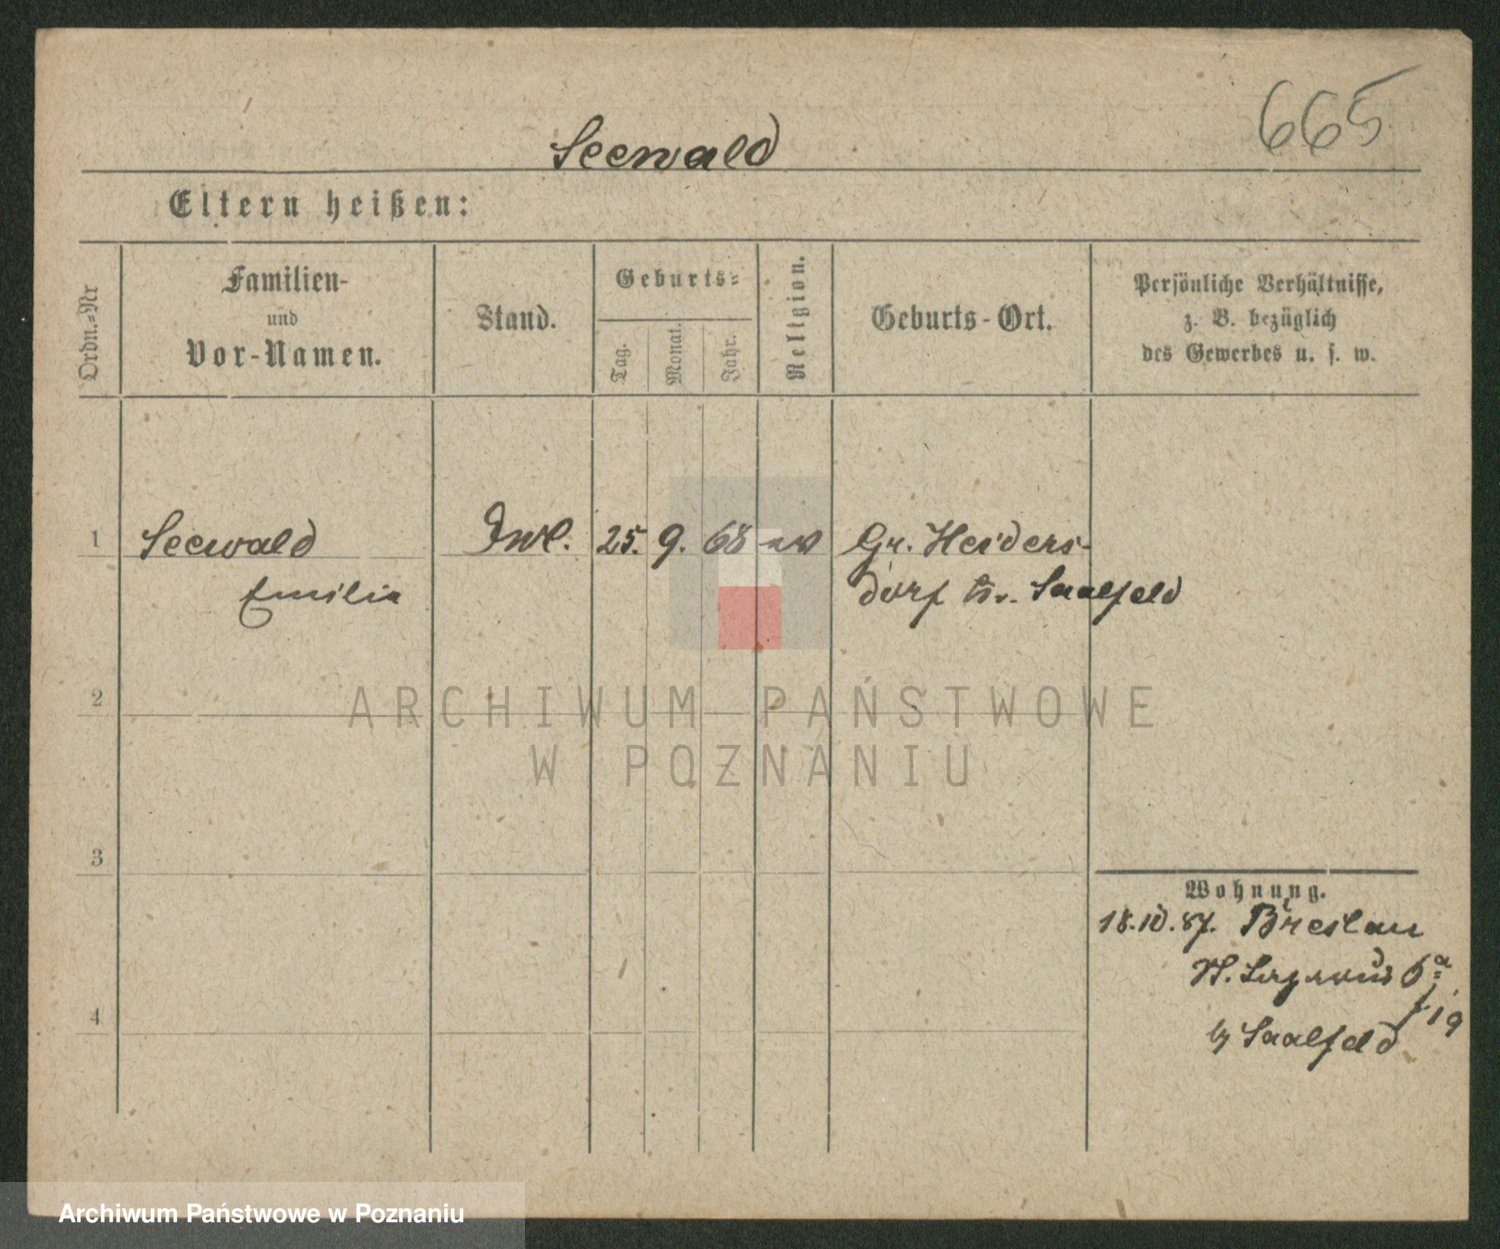 665
Seewald
Eltern heißen:
Ordn.-Nr
Familien-
und
Vor-Namen.
Stand.
Geburts-
Tag.
Monat.
Jahr.
Religion.
Geburts-Ort.
Persönliche Verhältnisse,
z. B. bezüglich
des Gewerbes u. s. w.
1 Seewald 25. 9. 68 ev Gr. Heiders-
Emilia dorf Kr. Saalfeld
ARCHIWUM PAŃSTWOWE
W POZNANIU
2
3
4
Wohnung.
18.10.87. Breslau
Saalfeld
Archiwum Państwowe w Poznaniu